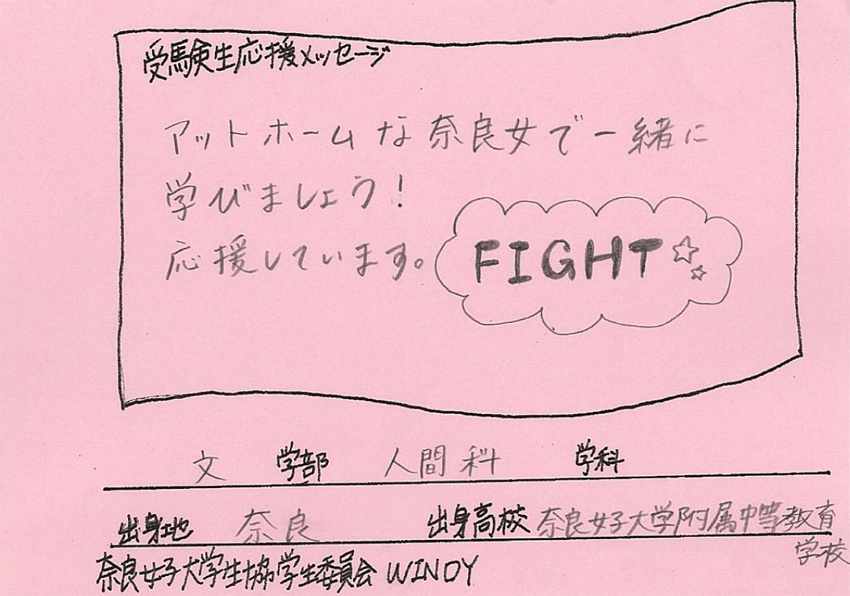 受験生応援メッセージ
アットホームな奈良女で一緒に
学びましょう!
応援しています。
FIGHT
文 学部 人間科 学科
出身地 奈良 出身高校 奈良女子大学附属中等教育
学校
奈良女子大学生協学生委員会 WINDY